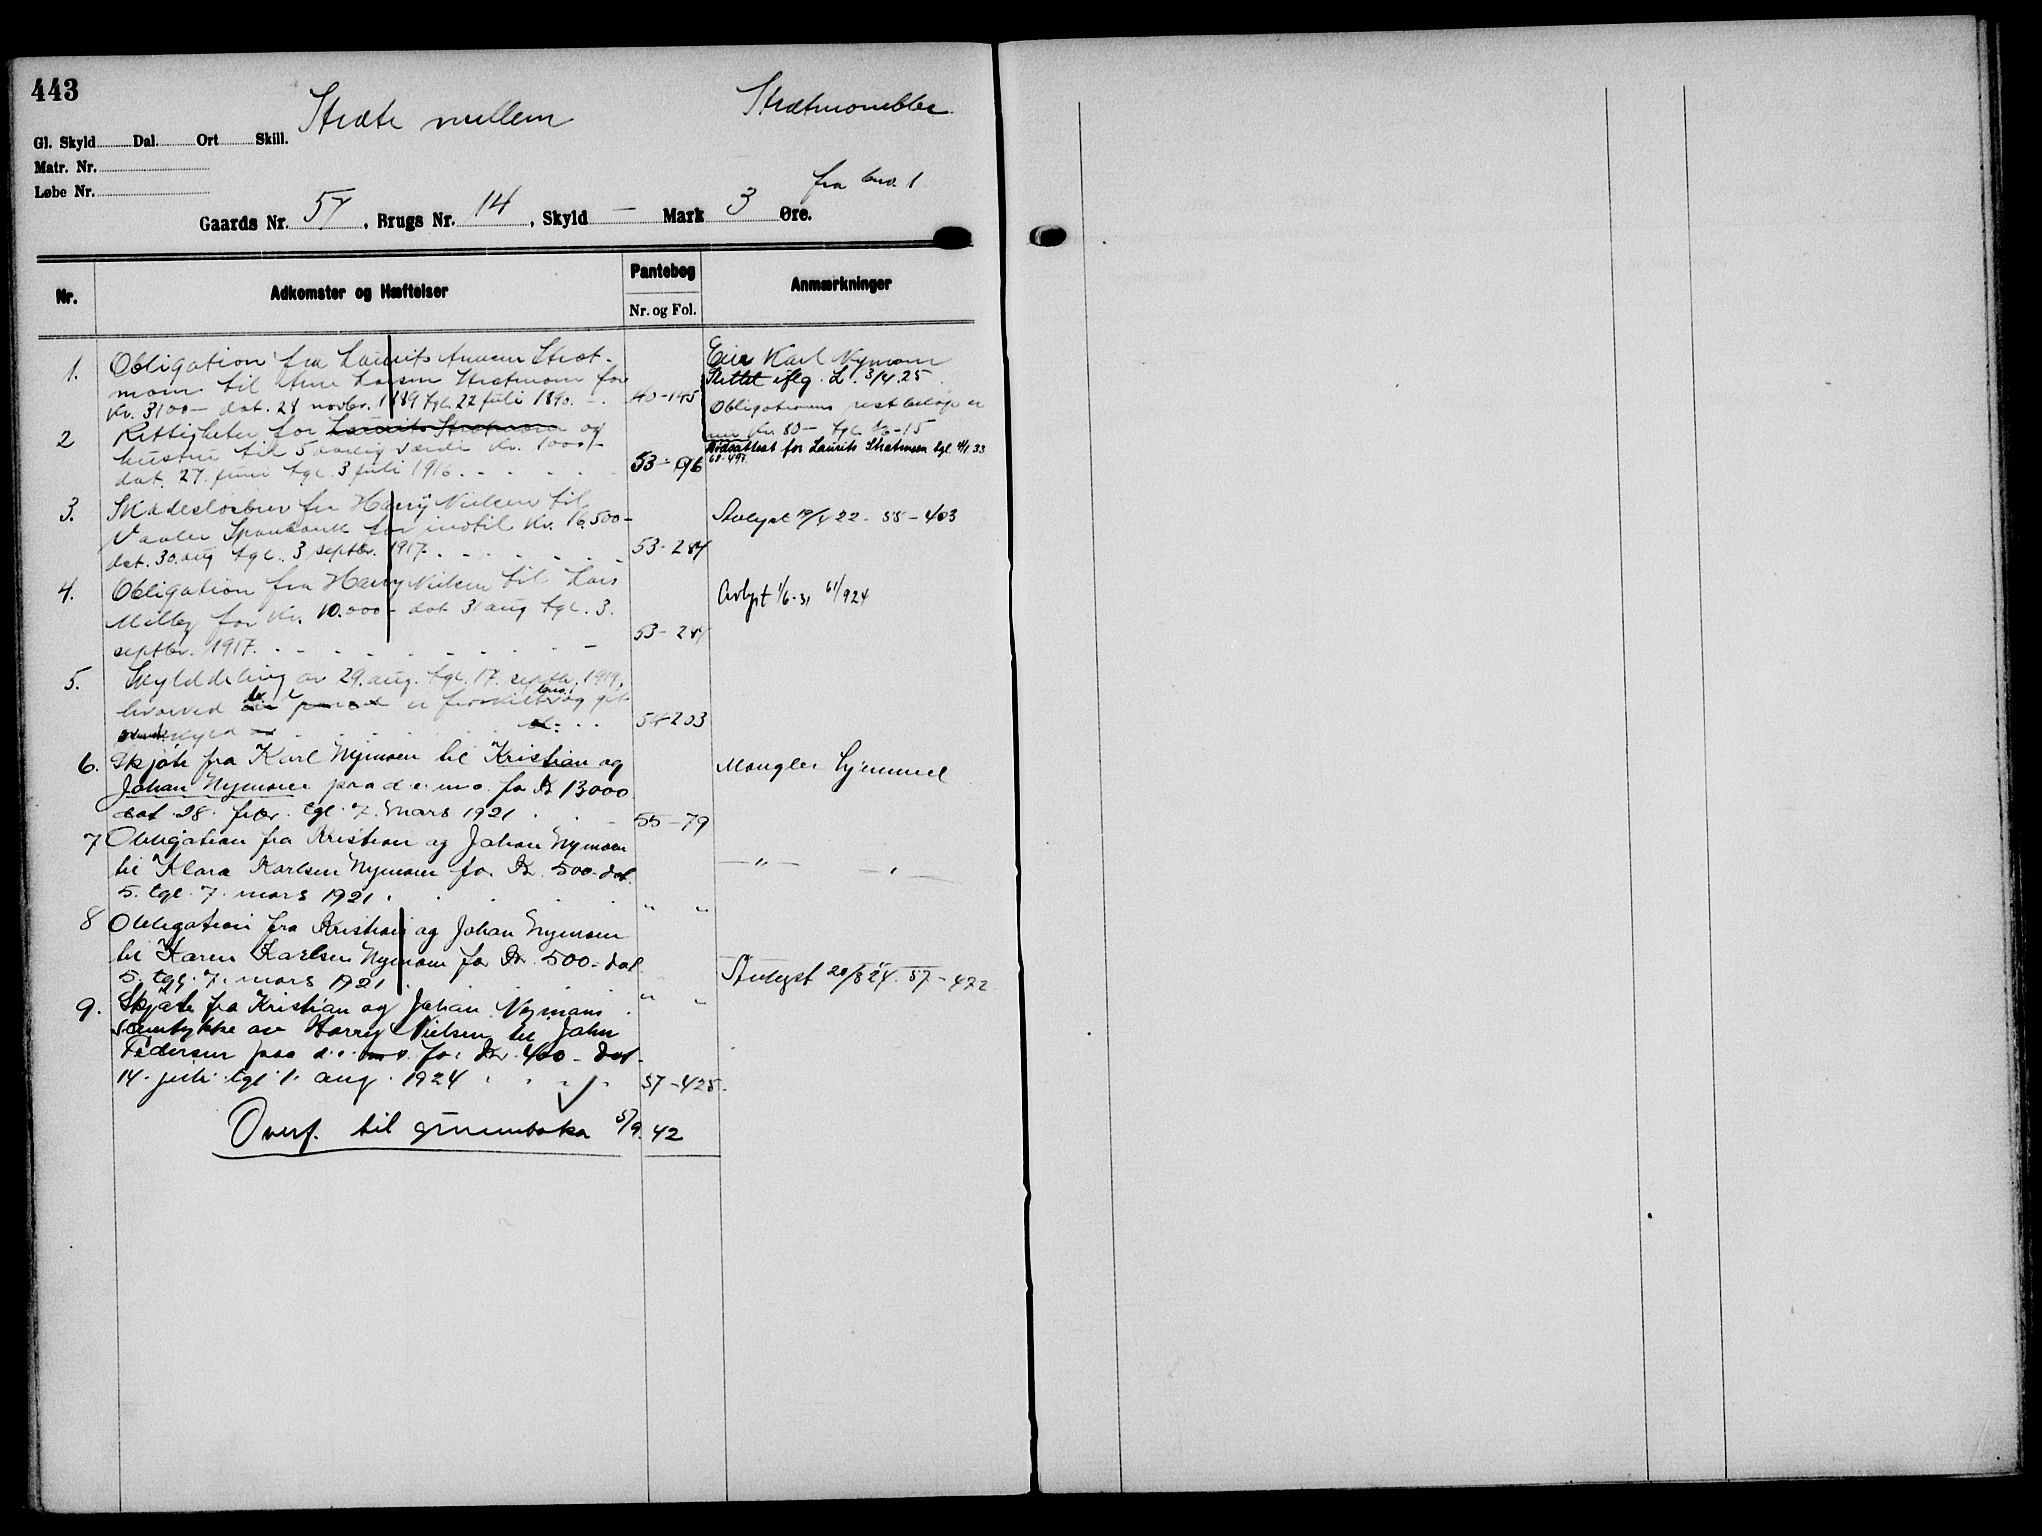 443
Stræte mellem
Strætmoneblea
Gl. Skyld Dal. Ort Skill.
Matr. Nr.
Løbe Nr.
fra bno. 1
Gaards Nr. 57, Brugs Nr. 14, Skyld — Mark 3 Øre.
Nr. Adkomster og Hæftelser Pantebog Anmærkninger
Nr. og Fol.
1. Obligation fra Laurits Arnesen Stræt-
moen til Arne Larsen Strætmoen for
Kr. 3100 — dat. 28 novbr. 1889 tgl. 22 juli 1890. — 40-145
Eier Karl Nymoen
Slettet iflg. L. 3/4.25
Obligationens restbeløp er
nu Kr. 80 — tgl. 1/6-15
2 Rettigheter for Laurits Strætmoen og
hustru til 5 aarlig værdi Kr. 1000/-
dat. 27. juni tgl. 3 juli 1916. - - - - 53-96
Dødsattest for Laurits Strætmoen tgl. 4/1 33
68-497
3. Skadesløsbrev fra Harry Nielsen til
Vaaler Sparebank for indtil Kr. 16.500-
dat. 30. aug tgl. 3 septbr. 1917. - - - - 53-284
Avlyst 19/4 22 - 55-403
4. Obligation fra Harry Nielsen til Lars
Melby for Kr. 10.000 - dat 31 aug tgl. 3.
septbr. 1917. - - - - - - 53-284
Avlyst 1/6-31 61/924
5. Skylddeling av 29. aug. tgl. 17. septbr. 1919,
hvorved er fraskilt og git
skyld 54-203
6. Skjøte fra Karl Nymoen til Kristian og
Johan Nymoen paa d. e. m. o. for Kr 13000
dat. 28. febr. tgl. 7. mars 1921 . . - 55-79
Mangler hjemmel
7 Obligation fra Kristian og Johan Nymoen
til Klara Karlsen Nymoen for Kr. 500- dat.
5. tgl. 7. mars 1921 . . . . " "
— " — — " —
8 Obligation fra Kristian og Johan Nymoen
til Karen Karlsen Nymoen for Kr. 500 - dat
5. tgl. 7. mars 1921 . . . " "
Avlyst 20/8 24. 57-472
9. Skjøte fra Kristian og Johan Nymoen
samtykke av Harry Nielsen til John
Pedersen paa d. e. m. o. for Kr. 400 - dat
14. juli tgl 1. aug. 1924 . . . . 57-425.
Overf. til grunnboka 5/9. 42